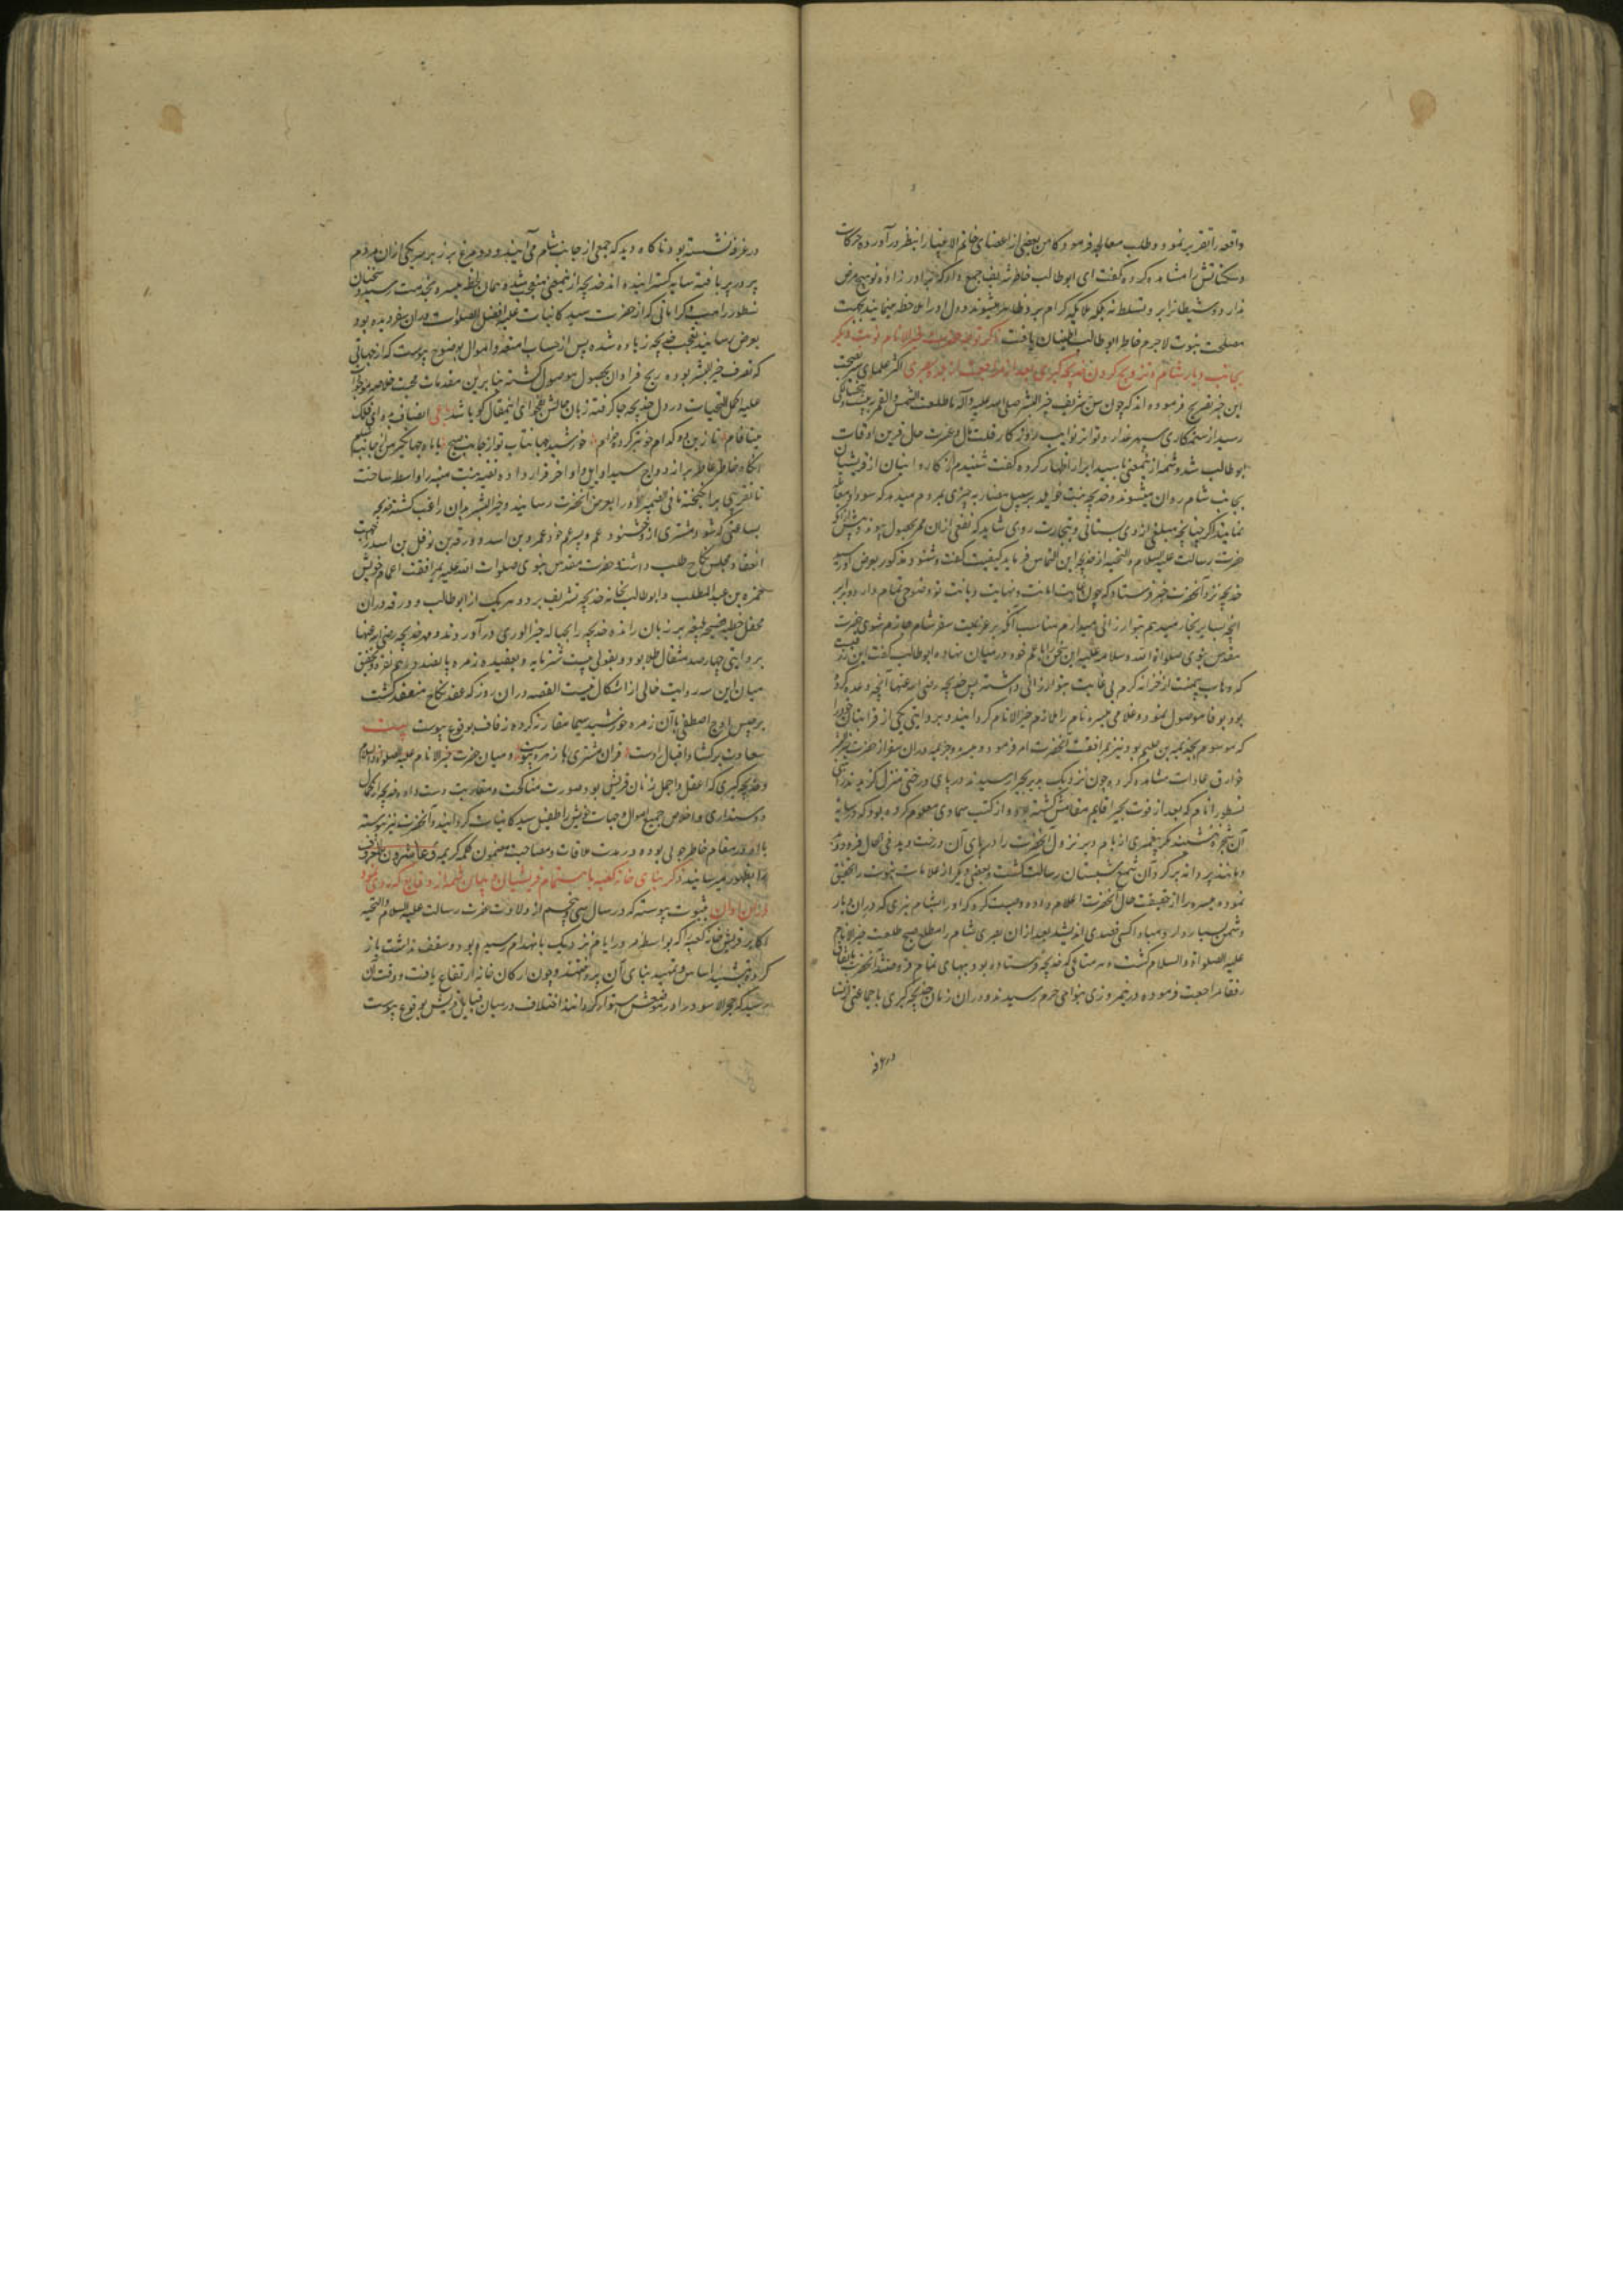 واقعه را تقریر نمود و طلب معالجه فرمود کاهن بعضی از اعضای خاتم الانبیا را بنظر در آورده حرکات
و سکناتش را مشاهده کرده گفت ای ابوطالب خاطر شریف جمع دار که برادر زاده تو هیچ مرض
ندارد و شیطانرا برو تسلط نه بلکه ملایکه کرام برو ظاهر میشوند و دل او را ملاحظه مینمایند بجهت
مصلحت نبوت لاجرم خاطر ابوطالب اطمینان یافت ذکر توجه حضرت خیر الانام نوبت دیگر
بجانب دیار شام و تزویج کردن خدیجه کبری بعد از مراجعت از اکثر علمای
این خبر تصریح فرموده اند که چون سن شریف خیر البشر صلی الله علیه و آله ما طلعت الشمس و القمر به بیست
رسید از ستمکاری سپهر غدار و تواتر نوایب روزگار قلت مال و عسرت حال قرین اوقات
ابوطالب شد و شمه از ینمعنی با سید ابرار اظهار کرده گفت شنیدم که کاروانیان از قریشیان
بجانب شام روان میشوند و خدیجه بنت خویلد بر سبیل مضاربه چیزی بمردم میدهد که سودا و معامله
نمایند اگر چنانچه مبلغی از وی بستانی و بتجارت روی شاید که نفعی از آن ممر بحصول پیوندد
حضرت رسالت علیه السلام و التحیه از خدیجه این التماس فرماید کیفیت گفت و شنود مذکور بعرض
خدیجه نزد آنحضرت خبر فرستاد که چون غایت امانت و نهایت دیانت تو وضوحی تمام دارد دو برابر
آنچه بسایر تجار میدهم بتو ارزانی میدارم مناسب آنکه بر عزیمت سفر شام جازم شوی حضرت
مقدس نبوی صلواة الله و سلامه علیه این سخن را با عم خود در میان نهاد ابوطالب گفت این رزقیست
که وهاب بیمنت از خزانه کرم بی غایت بتو ارزانی داشته پس خدیجه رضی الله عنها آنچه وعده کرده
بود بوفا موصول نمود و غلامی میسره نام را ملازم خیر الانام گردانید و بروایتی یکی از قرابتان خود را
که موسوم بخزیمه بن حکیم بود نیز بمرافقت آنحضرت امر فرمود و میسره و خزیمه در آن سفر از حضرت خیر البشر
خوارق عادات مشاهده کردند چون نزدیک بدیر بحیرا رسیدند در پای درختی منزل گزیدند راهبی
نسطورا نام که بعد از فوت بحیرا قایم مقامش گشته بود و از کتب سماوی معلوم کرده بود که در سایه
آن شجره ننشیند مگر پیغمبری از بام دیر نزول آنحضرت را در پای آن درخت دید فی الحال فرود دوید
و مانند پروانه بر گرد آن شمع شبستان رسالت گشت و بعضی دیگر از علامات نبوت را تحقیق
نموده میسره را از حقیقت حال آنحضرت اعلام داده وصیت کرد که او را بشام نبری که در آن دیار
دشمن بسیار دارد و مبادا کسی قصدی اندیشد بعد از آن بصری شام را مطلع صبح طلعت خیر الانام
علیه الصلواة و السلام گشت و هر متاعی که خدیجه فرستاده بود ببهای تمام فروختند آنحضرت باتفاق
رفقا مراجعت فرموده در نیمروزی بنواحی حرم رسیدند و در آن زمان خدیجه کبری با جماعتی از نسا
در غرفه
در غرفه نشسته بود ناگاه دید که جمعی از جانب شام می آیند و دو مرغ بر زبر سر یکی از آن مردم
پر در پر بافته سایه گسترانیده اند خدیجه از ینمعنی متعجب شده همان لحظه میسره بخدمت رسید و سخنان
نسطورا راهب و کراماتی که از حضرت سید کاینات علیه افضل الصلوات در آن سفر دیده بود
بعرض رسانید تعجب خدیجه زیاده شده پس از حساب امتعه و اموال بوضوح پیوست که از جهاتی
که تصرف خیر البشر بوده ربح فراوان بحصول موصول گشته بنا برین مقدمات محبت خلاصه موجودات
علیه اکمل التحیات در دل خدیجه جا گرفته زبان حالش بفحوای اینمقال گویا شد انصاف بده ای فلک
مینافام تا زین دو کدام خوبتر کرد خرام خورشید جهانتاب تو از جانب صبح یا ماه جهانگیر من از جانب شام
آنگاه خاطر عاطر بر ازدواج سید اوایل و اواخر قرار داده نفیسه بنت منیه را واسطه ساخت
تا تقریبی برانگیخته ما فی الضمیر او را بعرض آنحضرت رسانید و خیر البشر بدان راغب گشته خدیجه
بساعتی که شود مشتری از و خشنود عم و پسر عم خود عمرو بن اسد و ورقه بن نوفل بن اسد را جهت
انعقاد مجلس نکاح طلب داشت و حضرت مقدس نبوی صلوات الله علیه بمرافقت اعمام خویش
حمزه بن عبد المطلب و ابوطالب بخانه خدیجه تشریف برد و هر یک از ابوطالب و ورقه در آن
محفل خطبه فصیحه بلیغه بر زبان رانده خدیجه را بحباله خیر الوری در آوردند و مهر خدیجه رضی الله عنها
بروایتی چهار صد مثقال طلا بود و بقولی بیست شتر مایه و بعقیده زمره پانصد درهم نقره و تحقیق
میان این سه روایت خالی از اشکال نیست القصه در آن روز که عقد نکاح منعقد گشت
برجیس اوج اصطفی با آن زهره خورشید سیما مقارنه کرده زفاف بوقوع پیوست بیت
سعادت بر گشاد اقبال را دست قران مشتری با زهره پیوست و میان حضرت خیر الانام علیه الصلواة و السلام
و خدیجه کبری که اعقل و اجمل زنان قریش بود صورت مناکحت و مقاربت دست داده خدیجه از کمال
دوستداری و اخلاص جمیع اموال و جهات خویش را طفیل سید کاینات گردانید و آنحضرت نیز پیوسته
با او در مقام خاطر جویی بوده در مدت ملاقات و مصاحبت مضمون کلمه کریمه و عاشروهن بالمعروف
بظهور میرسانید ذکر بنای خانه کعبه باهتمام قریشیان و بیان شمه از وقایع که روی نمود
در آن اوان بثبوت پیوسته که در سال سی و پنجم از ولادت حضرت رسالت علیه السلام و التحیه
اکابر قریش خانه کعبه را که بواسطه مرور ایام نزدیک بانهدام رسیده بود و سقف نداشت باز
کردند و بتشیید اساس و تمهید بنای آن پرداختند و چون ارکان خانه ارتفاع یافت و وقت آن
رسید که حجر الاسود را در موضعش استوار گردانند اختلاف در میان قبایل قریش بوقوع پیوست